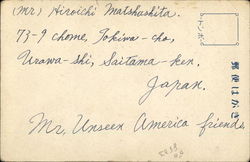 (Mr) Hiroichi Matshushita.
73-9 chome, Tokiwa-cho,
Urawa-shi, Saitama-ken.
Japan.
Mr, Unseen America friends
郵便はがき